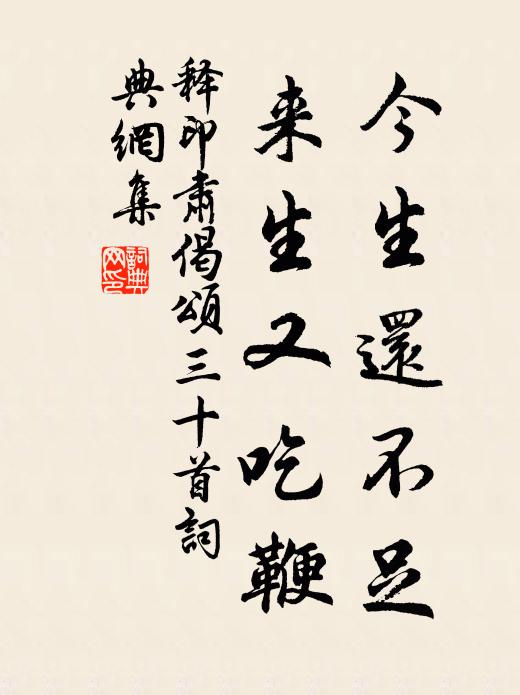 今生還不足
来生又吃鞭
释印肅偈頌三十首詞
典網集
詞典
网印